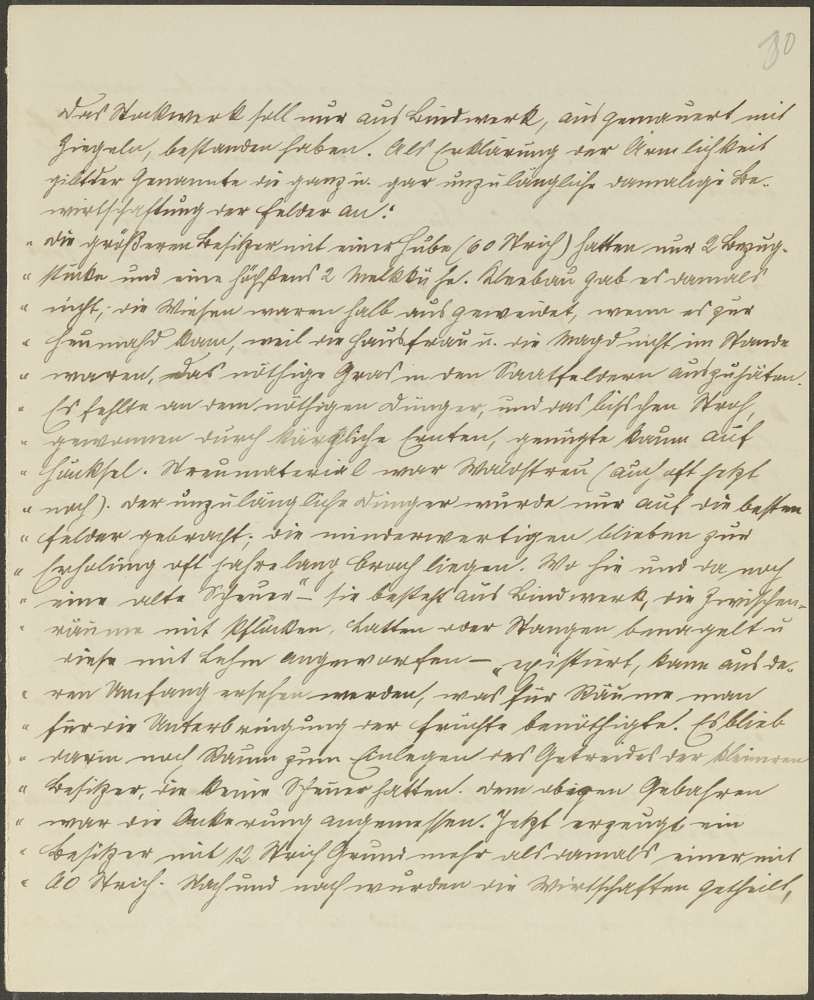 80
Das Stockwerk soll nur aus Bindwerk, ausgemauert mit
Ziegeln, bestanden haben. Als Erklärung der Ärmlichkeit
gibt der Genannte die ganz u. gar unzulängliche damalige Be-
wirtschaftung der Felder an:
" Die größeren Besitzer mit einer Hube (60 Strich) hatten nur 2 Bezug-
" stücke und eine höchstens 2 Melkkühe. Kleebau gab es damals
" nicht; die Wiesen waren halb ausgeweidet, wenn es zur
" Heumahd kam, weil die Hausfrau u. die Magd nicht im Stande
" waren, das nöthige Gras in den Saatfeldern auszujäten.
" Es fehlte an dem nöthigen Dünger, und das bisschen Stroh,
" gewonnen durch kärgliche Ernten, genügte kaum auf
" Häcksel. Streumaterial war Waldstreu (auch oft jetzt
" noch). Der unzulängliche Dünger wurde nur auf die besten
" Felder gebracht; die minderwertigen blieben zur
" Erholung oft jahrelang brach liegen. Wo hie und da noch
" eine alte Scheuer" – sie besteht aus Bindwerk, die Zwischen-
" räume mit Pflöcken, Latten oder Stangen benagelt u
diese mit Lehm angeworfen – "existiert, kann aus de-
" ren Umfang ersehen werden, was für Räume man
" für die Unterbringung der Früchte benöthigte. Es blieb
" darin noch Raum zum Einlegen des Getreides der kleineren
" Besitzer, die keine Scheuer hatten. Dem obigen Gebahren
" war die Ackerung angemessen. Jetzt erzeugt ein
" Besitzer mit 12 Strich Grund mehr als damals einer mit
" 60 Strich. Nach und nach wurden die Wirtschaften getheilt,